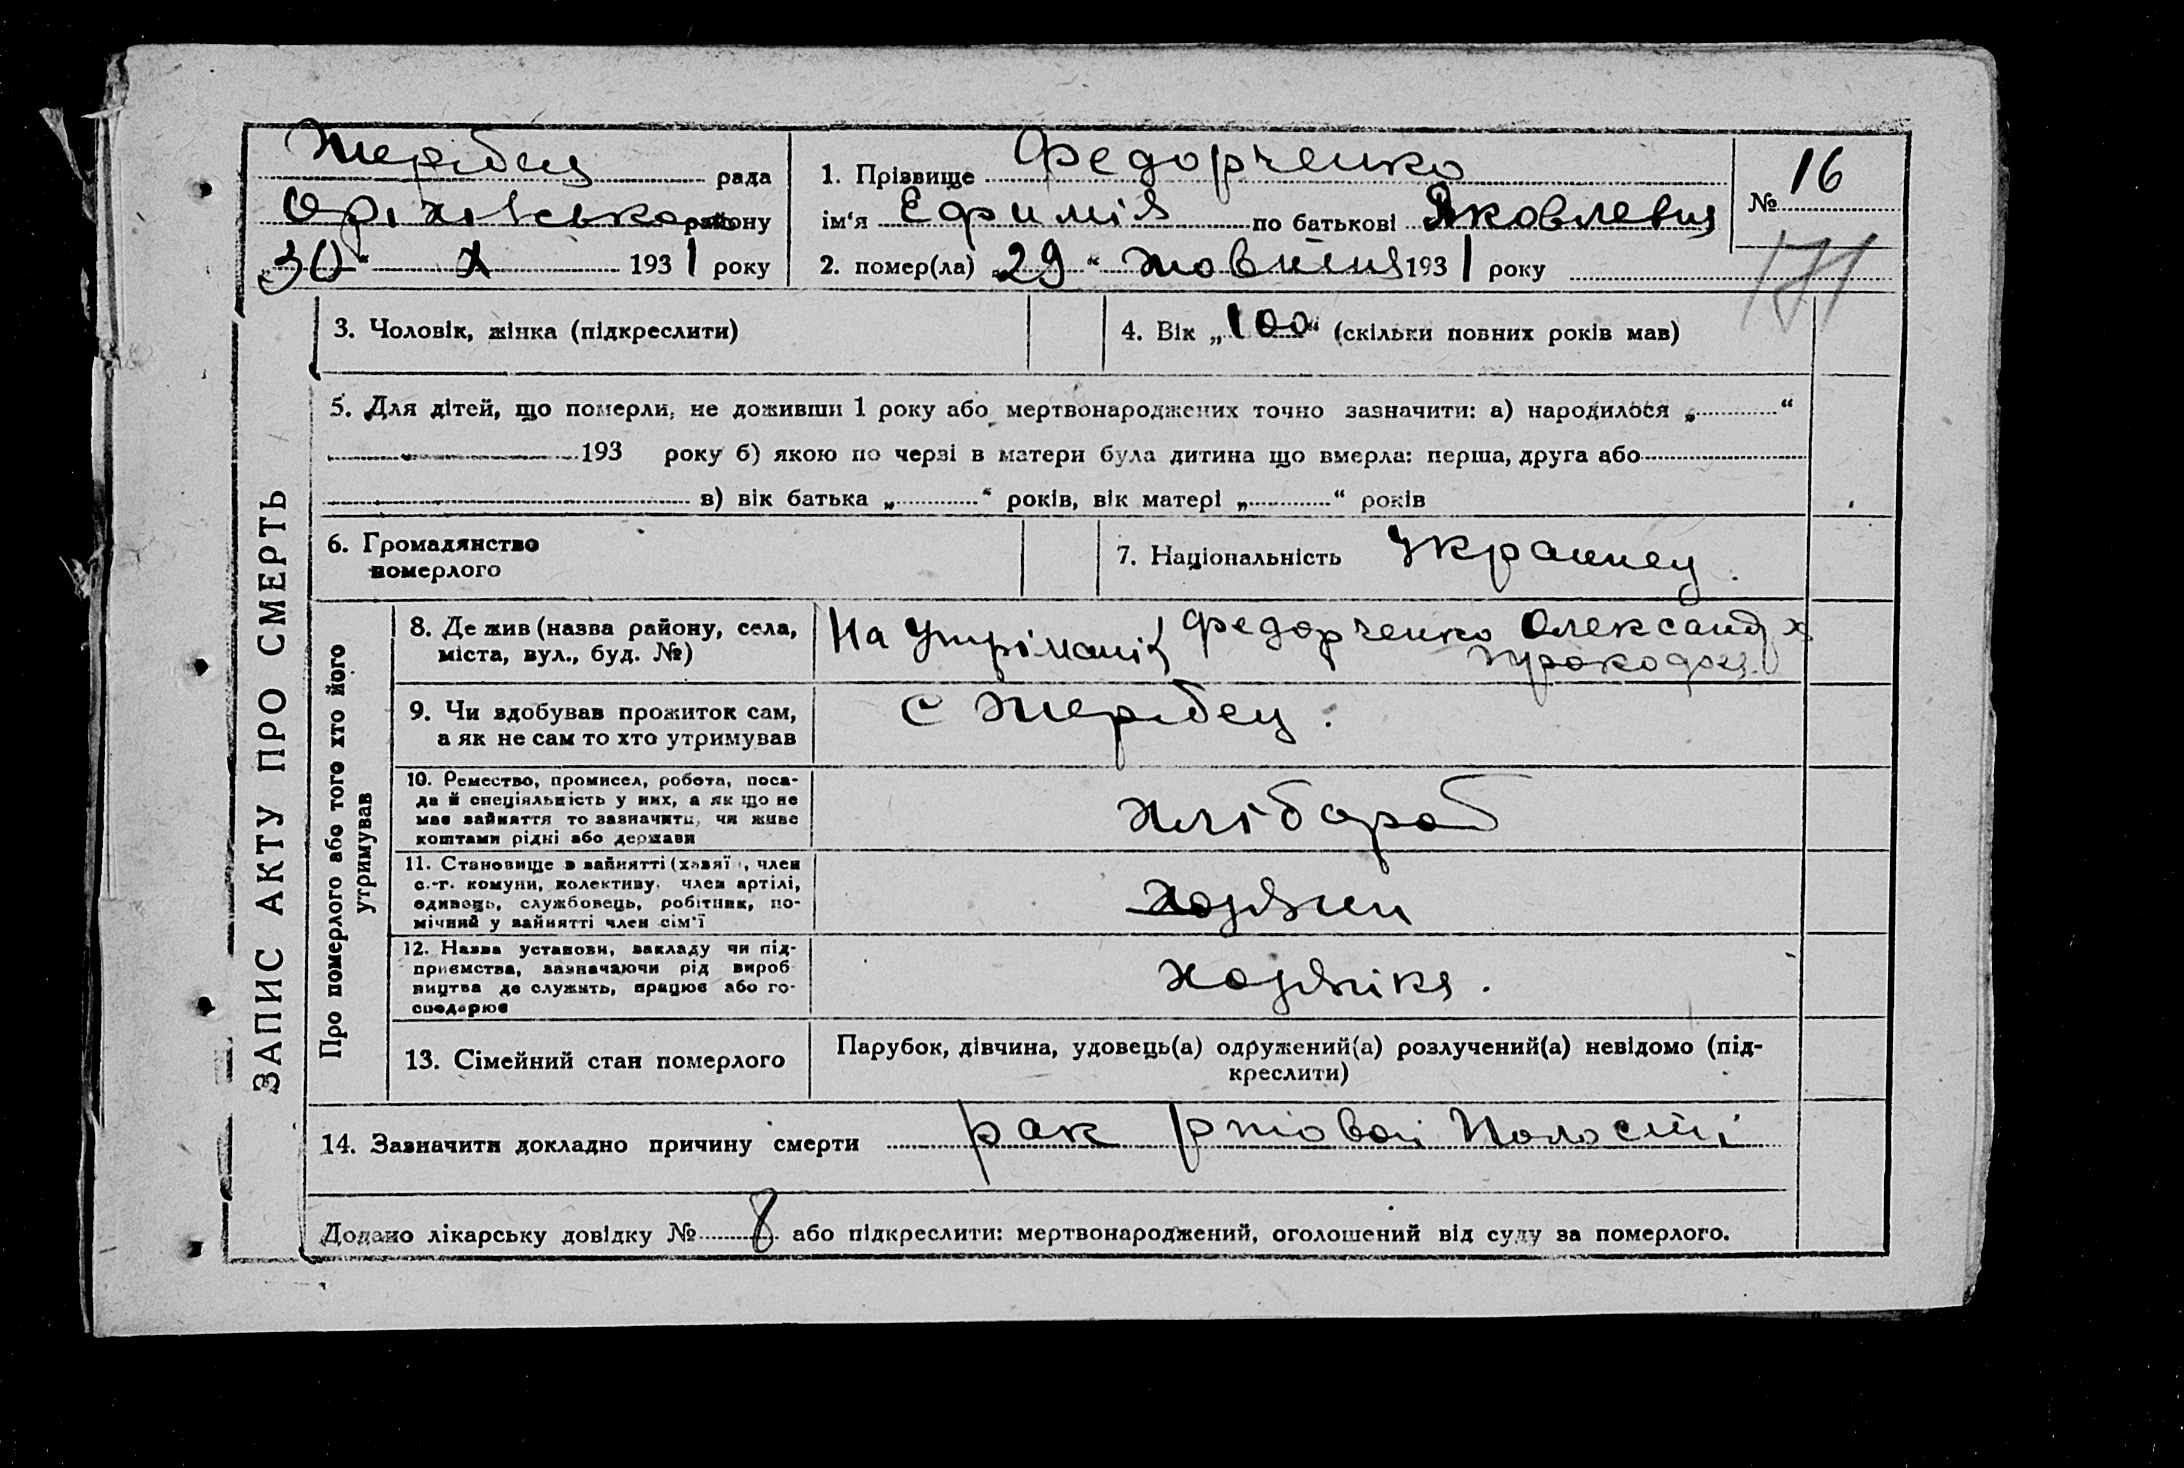 Жеребец рада
Оріхівського району
„30“ X 1931 року
1. Прізвище Федорченко
ім‘я Ефимія по батькові Яковлевня
2. помер(ла) „29“ жовтня 1931 року
№ 16
171
ЗАПИС АКТУ ПРО СМЕРТЬ
3. Чоловік, жінка (підкреслити)
4. Вік „100“ (скільки повних років мав)
5. Для дітей, що померли, не доживши 1 року або мертвонароджених точно зазначити: а) народилося „ “
193 року б) якою по черзі в матери була дитина що вмерла: перша, друга або
в) вік батька „ “ років, вік матері „ “ років
6. Громадянство
померлого
7. Національність Украинец.
Про померлого або того хто його
утримував
8. Де жив (назва району, села,
міста, вул., буд. №)
На утріманні Федорченко Олександ
9. Чи здобував прожиток сам,
а як не сам то хто утримував
с Жеребец.
10. Ремество, промисел, робота, поса-
да й спеціяльність у них, а як що не
має зайняття то зазначити, чи живе
коштами рідні або держави
хлібороб
11. Становище в зайнятті (хазяїн, член
с.-г. комуни, колективу, член артілі,
одинець, службовець, робітник, по-
мічний у зайнятті член сім‘ї
хозяин
12. Назва установи, закладу чи під-
приємства, зазначаючи рід вироб-
ництва де служить, працює або го-
сподарює
хозяіка.
13. Сімейний стан померлого
Парубок, дівчина, удовець(а) одружений(а) розлучений(а) невідомо (під-
креслити)
14. Зазначити докладно причину смерти рак ртовой полості
Додано лікарську довідку № 8 або підкреслити: мертвонароджений, оголошений від суду за померлого.